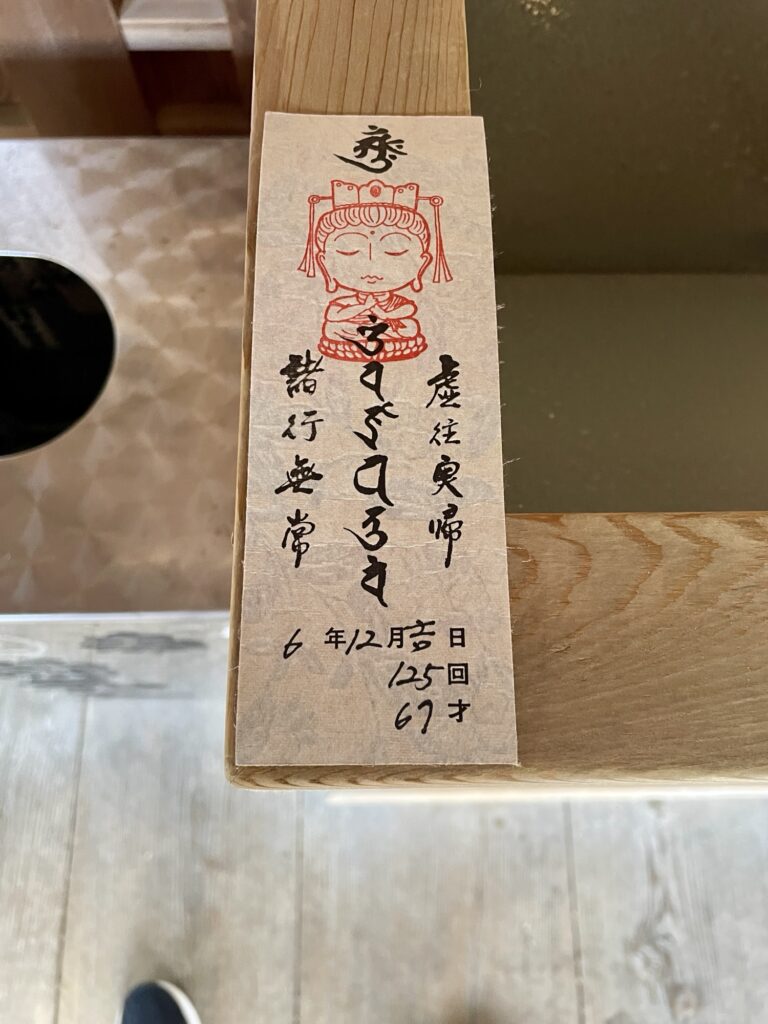 虚往実帰
諸行無常
6年12月吉日
125回
67才